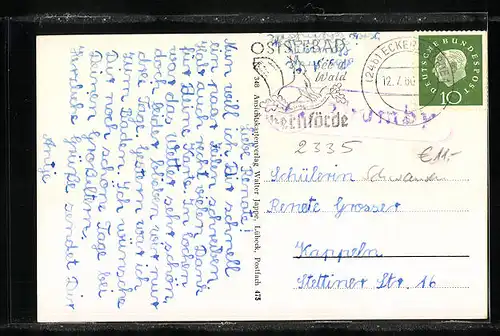 Liebe Renate!
Nun will ich Dir schnell
ein paar Zeilen schreiben.
Hab auch recht vielen Dank
für Deine Karte. In Lochen
war das Wetter sehr schön,
doch leider blieben wir nur
drei Tage. Gestern war ich
zum Baden. Ich wünsche
Dir noch schöne Tage bei
Deinen Großeltern.
Herzliche Grüße sendet Dir
Antje
348 Ansichtskartenverlag Walter Jappe, Lübeck, Postfach 475
OSTSEEBAD
Meer &
Wald
Eckernförde
(24b) ECKER
12.7.60
DEUTSCHE BUNDESPOST
10
2335
€ 11,-
Schülerin
Renate Grosser
Kappeln
Stettiner Str. 16